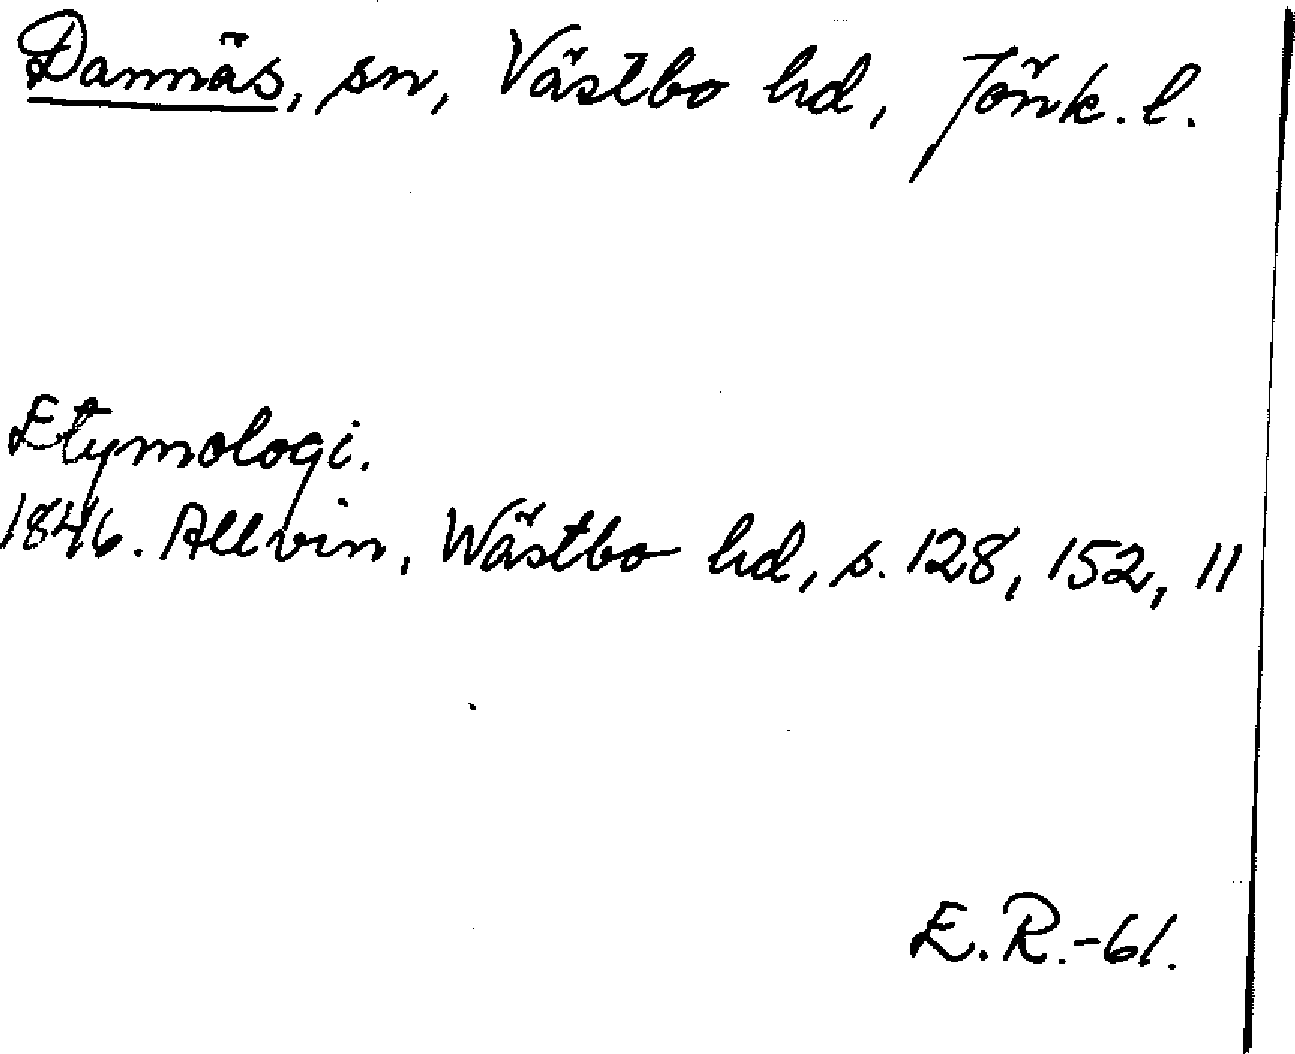 Dannäs, sn, Västbo hd, Jönk. l.
Etymologi.
1846. Allvin, Wästbo hd, s. 128, 152, 11
E. R. -61.